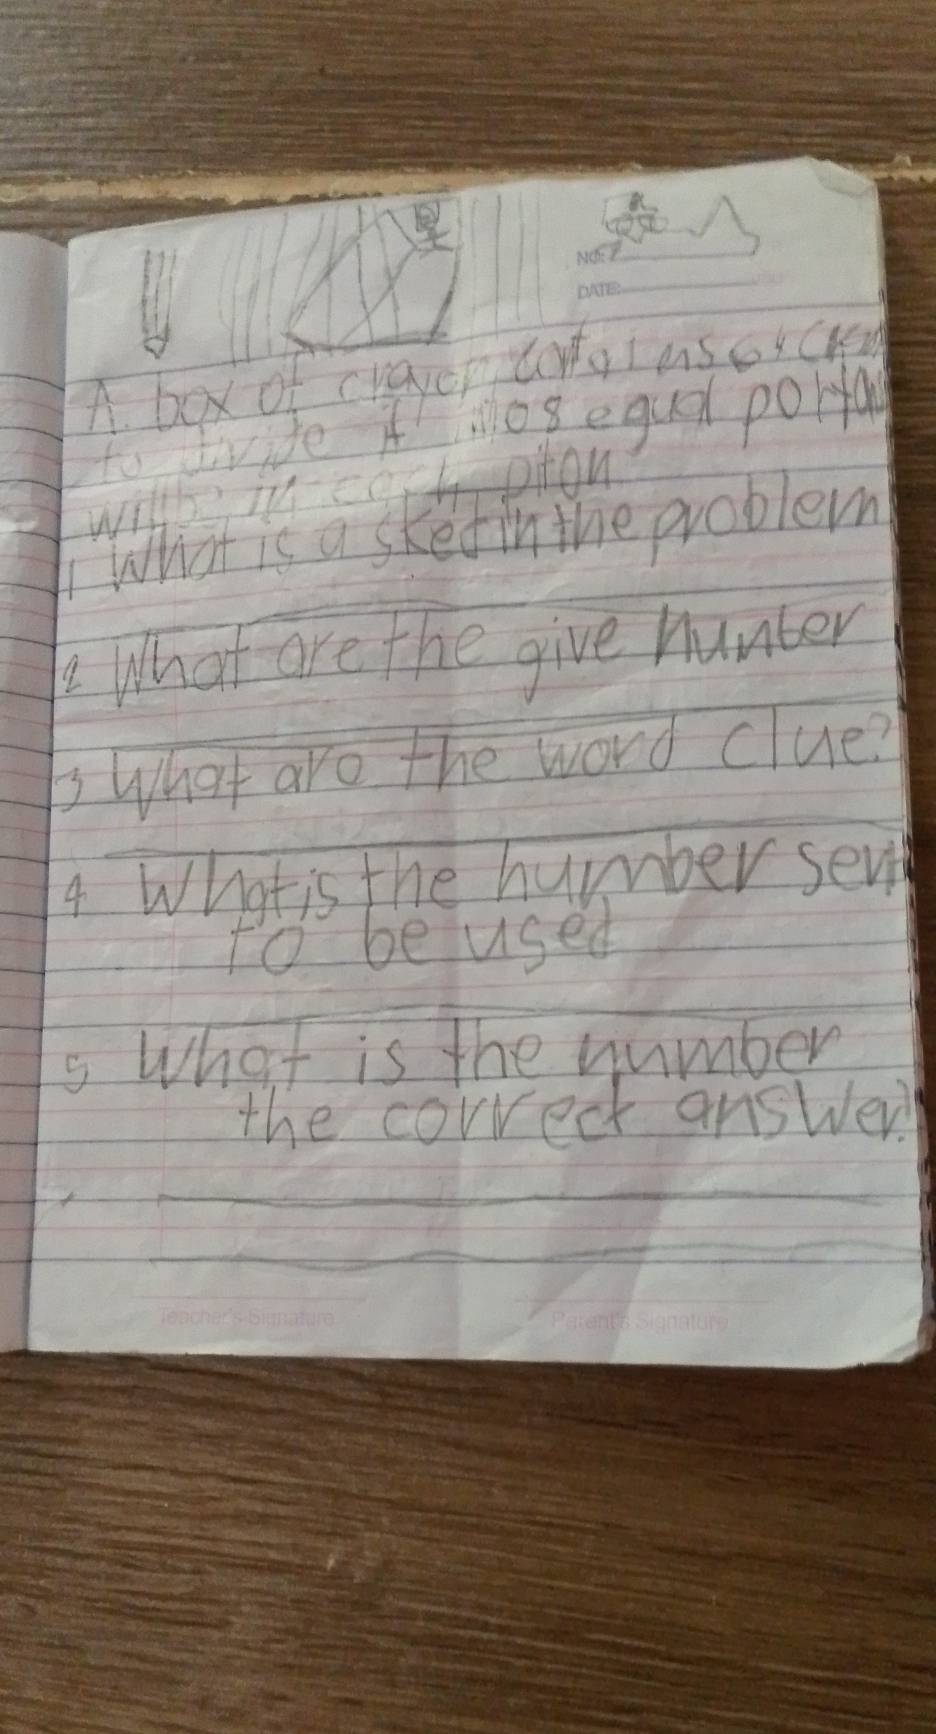 NO:
DATE:
A box of crayon contains 64
to divide it into 8 equal
will be in each
1 What is a sked in the problem
2 What are the give number
3 What are the word clue?
4 What is the number sent
to be used
5 What is the number
the correct answer?
Teacher's Signature
Parent's Signature